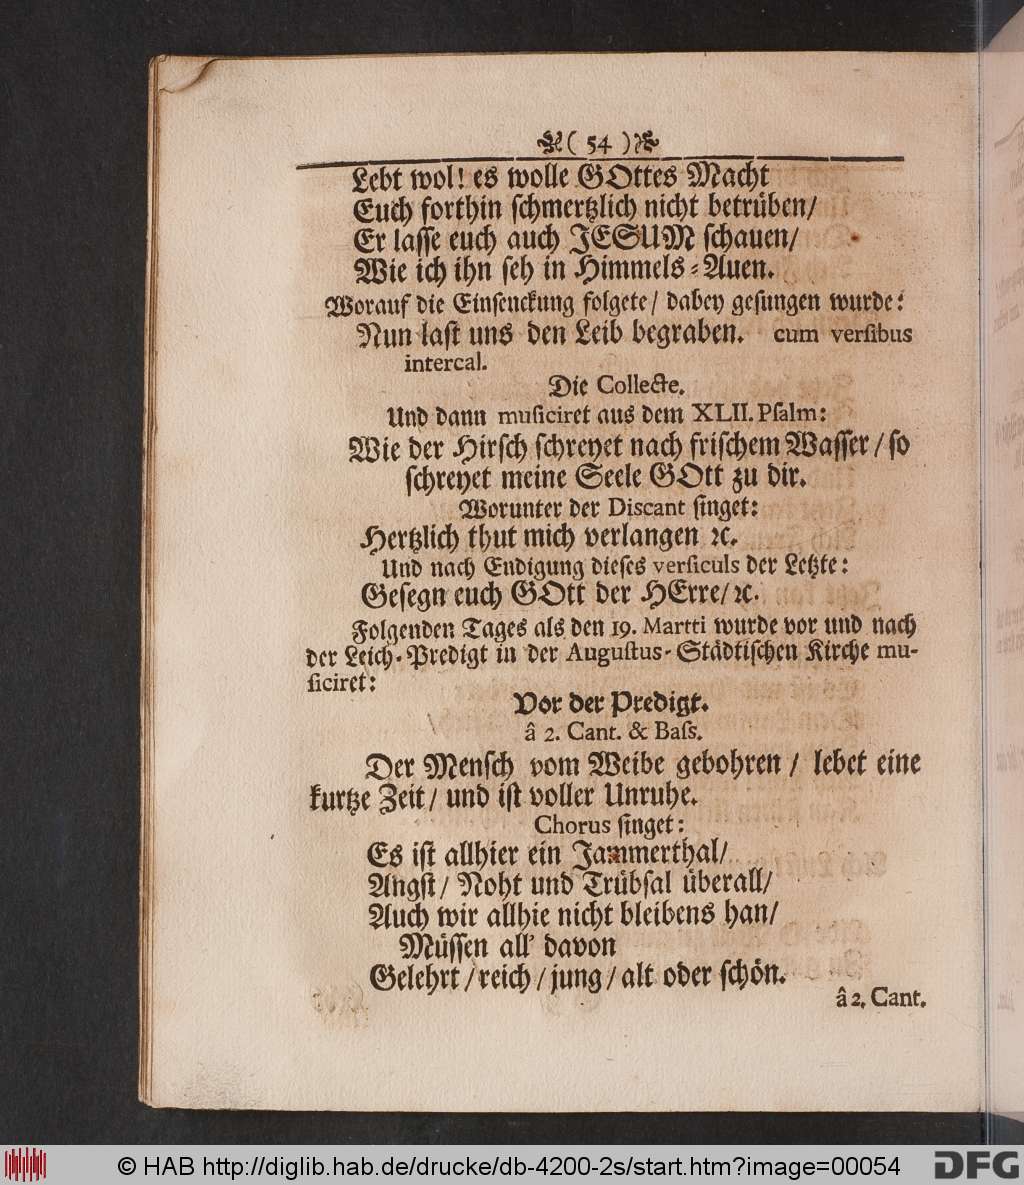 ( 54 )
Lebt wol! es wolle GOttes Macht
Euch forthin schmertzlich nicht betrüben/
Er lasse euch auch JESUM schauen/
Wie ich ihn seh in Himmels-Auen.
Worauf die Einsenckung folgete/ dabey gesungen wurde:
Nun last uns den Leib begraben. cum versibus
intercal.
Die Collecte.
Und dann musiciret aus dem XLII. Psalm:
Wie der Hirsch schreyet nach frischem Wasser/ so
schreyet meine Seele GOtt zu dir.
Worunter der Discant singet:
Hertzlich thut mich verlangen ꝛc.
Und nach Endigung dieses versiculs der Letzte:
Gesegn euch GOtt der HErre/ ꝛc.
Folgenden Tages als den 19. Martti wurde vor und nach
der Leich-Predigt in der Augustus-Städtischen Kirche mu-
siciret:
Vor der Predigt.
â 2. Cant. & Bass.
Der Mensch vom Weibe gebohren/ lebet eine
kurtze Zeit/ und ist voller Unruhe.
Chorus singet:
Es ist allhier ein Jammerthal/
Angst/ Noht und Trübsal überall/
Auch wir allhie nicht bleibens han/
Müssen all' davon
Gelehrt/ reich/ jung/ alt oder schön.
â 2. Cant.
© HAB http://diglib.hab.de/drucke/db-4200-2s/start.htm?image=00054
DFG